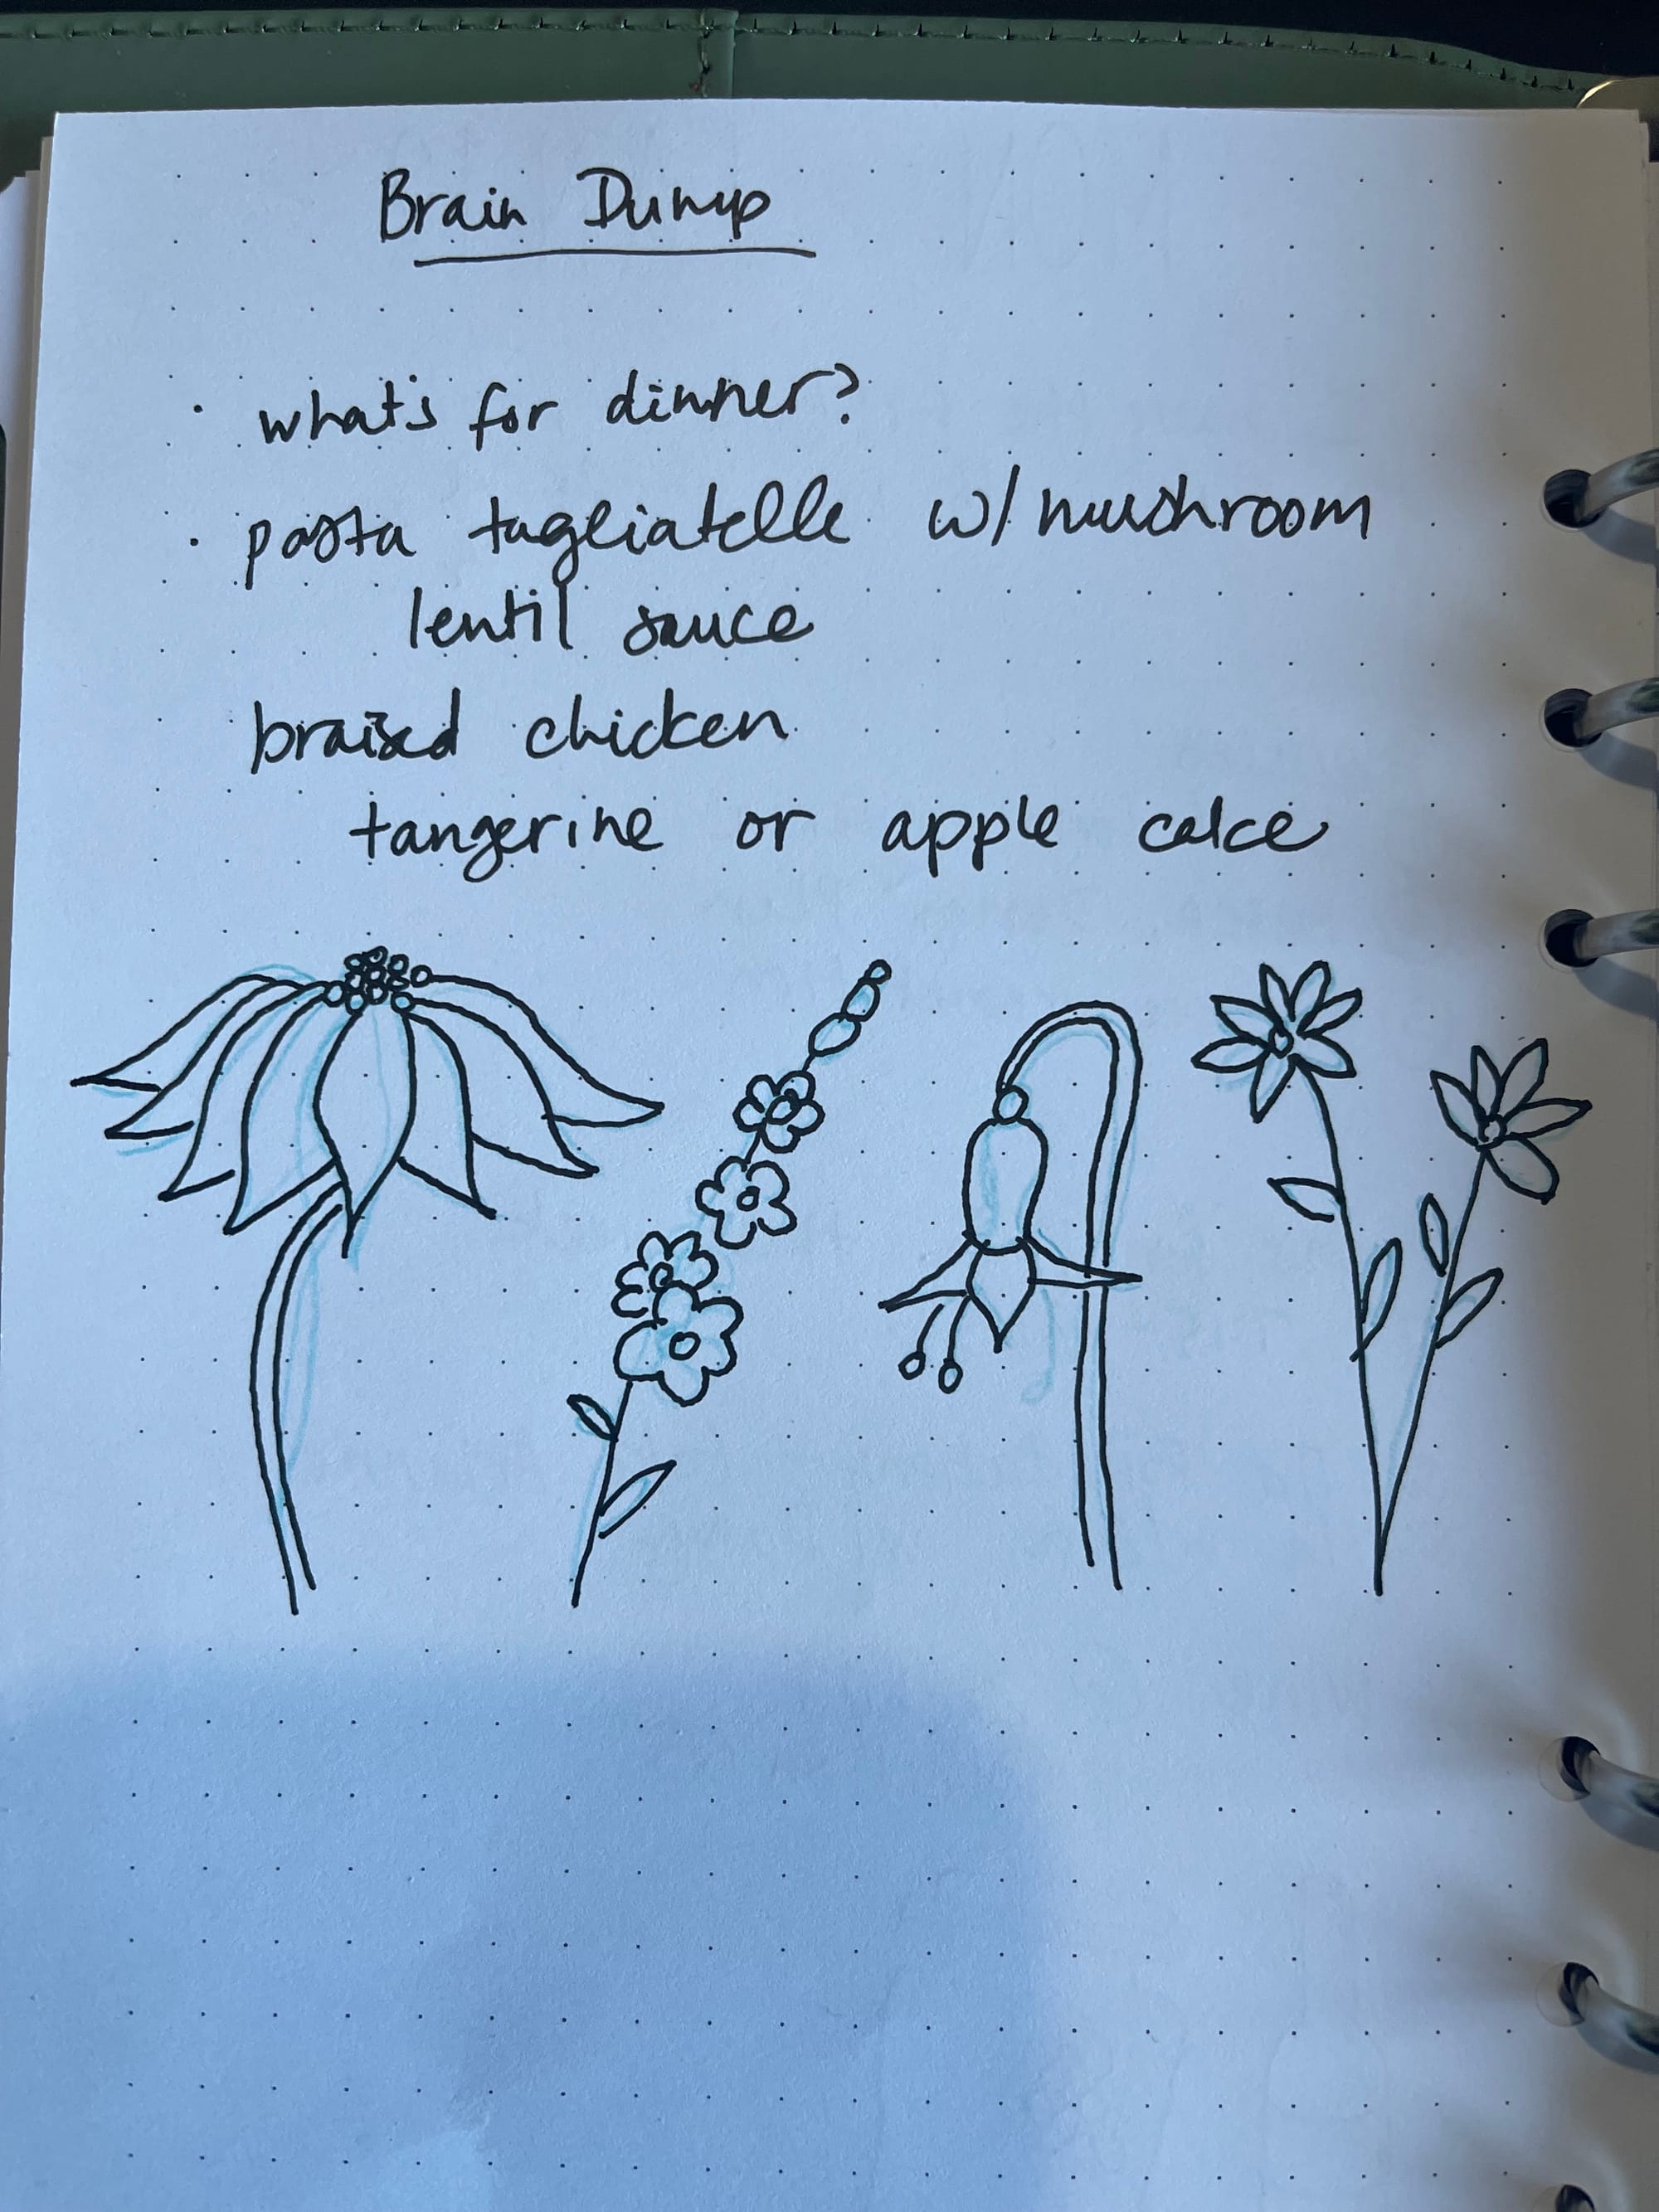 Brain Dump
· what's for dinner?
· pasta tagliatelle w/ mushroom
lentil sauce
braised chicken
tangerine or apple cake